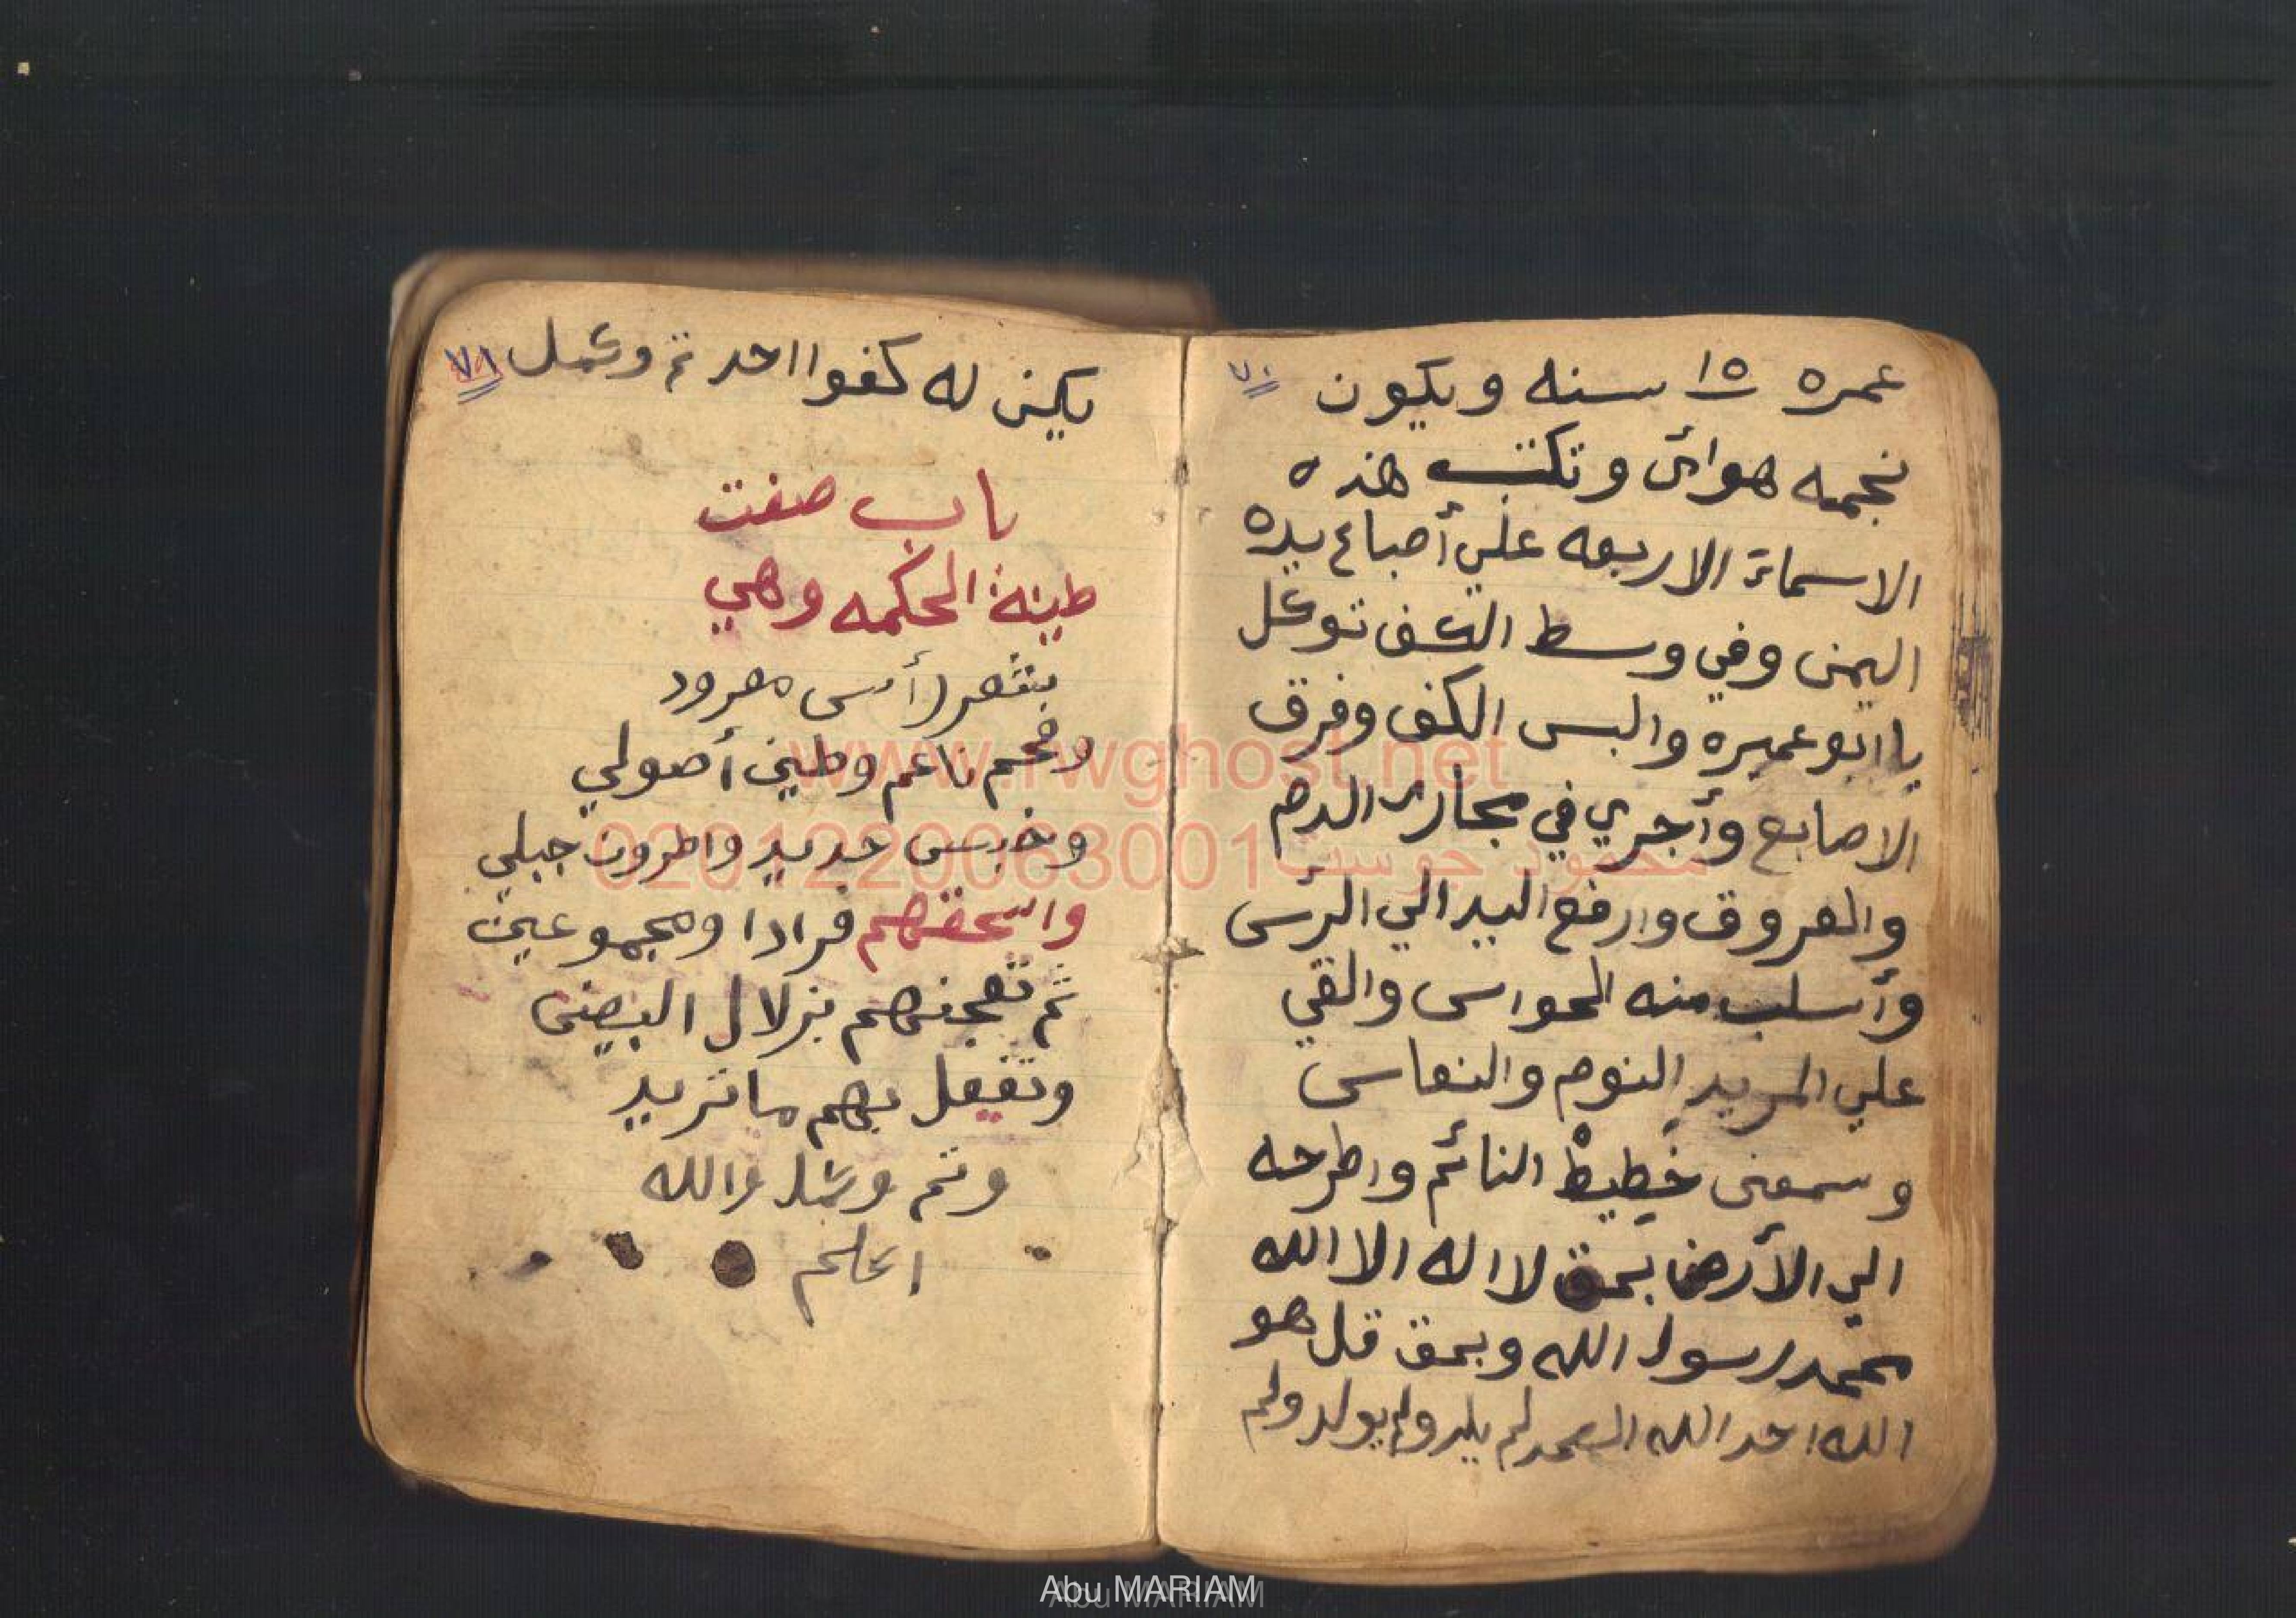 ٧٠
عمره ١٥ سنه ويكون
نجمه هوائى وتكتب هذه
الاسمائ الاربعه علي أصباع يده
اليمنى وفي وسط الكف توكل
يا ابو عميره والبس الكف وفرق
الاصابع وأجري في مجارى الدم
والعروق وارفع اليد الي الرئس
وأسلب منه الحواس والقي
علي المريد النوم والنعاس
وسمعنى خطيط النائم واطرحه
الي الأرض بحق لا اله الا الله
محمد رسول الله وبحق قل هو
الله احد الله الصمد لم يلد ولم يولد ولم
٧١
يكن له كفوا احد تم وكمل
باب صفت
طينة الحكمه وهي
بشعر رأس مهرود
وفحم ناعم وطين أصولي
وخبس حديد واطرون جبلي
واسحقهم فرادا ومجموعين
ثم تعجنهم بزلال البيض
وتفعل بهم ما تريد
وتم وكمل والله
اعلم
www.rwghost.net
محمود جوست 0201220063001
Abu MARIAM